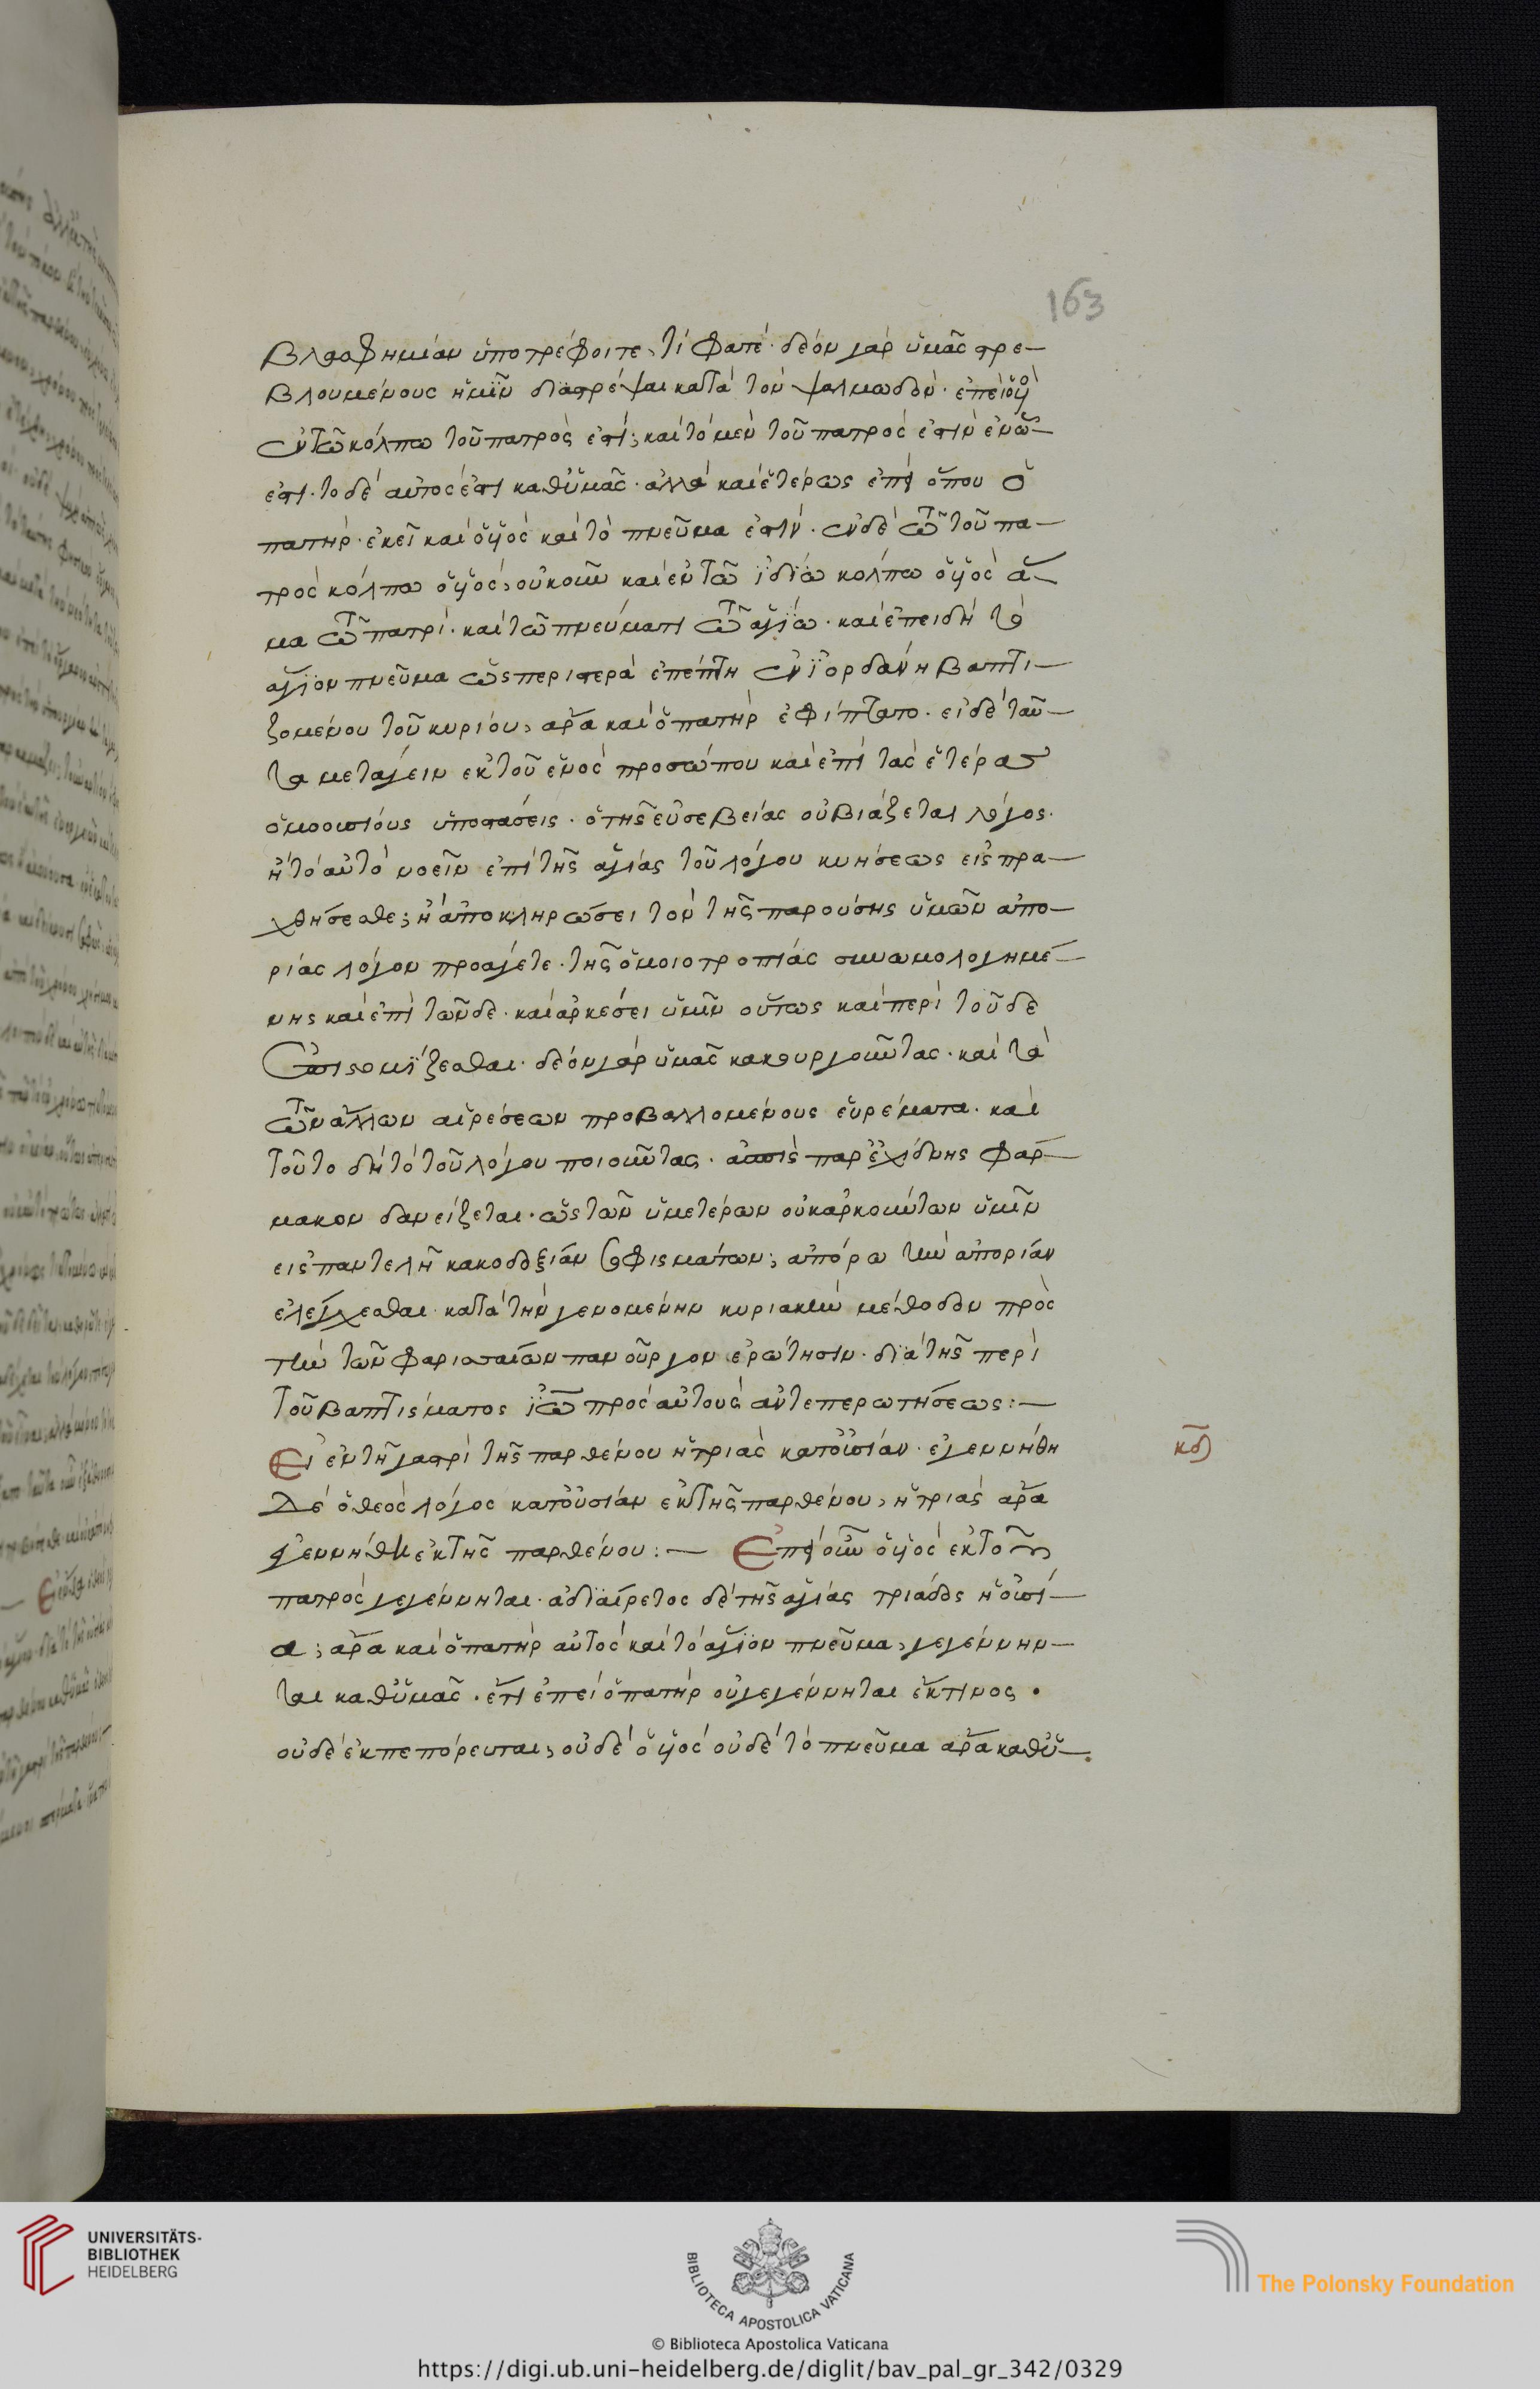 163
βλασφημίαν ὑποτρέφοιτε, τί φατέ· δέον γὰρ ὑμᾶς στρε-
βλουμένους ἡμῖν διαστρέψαι κατὰ τὸν ψαλμωδόν· ἐπεὶ ὁ ὑιὸ
ἐν τῶ κόλπω τοῦ πατρός ἐστι; καὶ τὸ μὲν τοῦ πατρός ἐστιν ἐν ὧ
ἐστι· τὸ δὲ αὐτὸς ἐστι καθ' ὑμᾶς· ἀλλὰ καὶ ἑτέρως ἐπεὶ ὅπου ὁ
πατὴρ· ἐκεῖ καὶ ὁ ὑιὸς καὶ τὸ πνεῦμα ἐστίν· ἐν δὲ τῶ τοῦ πα-
τρὸς κόλπω ὁ ὑιός, οὐκοῦν καὶ ἐν τῶ ἰδίω κόλπω ὁ ὑιὸς ἅ-
μα τῶ πατρί· καὶ τῶ πνεύματι τῶ ἁγίω· καὶ ἐπειδὴ τὸ
ἅγιον πνεῦμα ὡς περιστερὰ ἐπέπτη ἐν ἰορδάνη βαπτι-
ζομένου τοῦ κυρίου, ἆρα καὶ ὁ πατὴρ ἐφίπτατο· εἰ δὲ ταῦ-
τα μετάγειν ἐκ τοῦ ἑνὸς προσώπου καὶ ἐπὶ τὰς ἑτέρας
ὁμοουσίους ὑποστάσεις· ὁ τῆς εὐσεβείας οὐ βιάζεται λόγος·
ἢ τὸ αὐτὸ νοεῖν ἐπὶ τῆς ἁγίας τοῦ λόγου κυήσεως εἰσπρα-
χθήσεσθε; ἢ ἀποκληρώσει τὸν τῆς παρούσης ὑμῶν ἀπο-
ρίας λόγον προάγετε· τῆς ὁμοιοτροπίας συνωμολογημέ-
νης καὶ ἐπὶ τῶνδε· καὶ ἀρκέσει ὑμῖν οὕτως καὶ περὶ τοῦδε
ἀποστομίζεσθαι· δέον γὰρ ὑμᾶς κακουργοῦντας· καὶ τὰ
τῶν ἄλλων αἱρέσεων προβαλλομένους εὑρέματα· καὶ
τοῦτο δὴ τὸ τοῦ λόγου ποιοῦντας· ἀσπὶς παρ' ἐχίδνης φάρ-
μακον δανείζεται· ὡς τῶν ὑμετέρων οὐκ ἀρκούντων ὑμῖν
εἰς παντελῆ κακοδοξίαν σοφισμάτων; ἀπόρω τὴν ἀπορίαν
ἐλέγχεσθαι· κατὰ τὴν γενομένην κυριακὴν μέθοδον πρὸς
τὴν τῶν φαρισσαίων πανοῦργον ἐρώτησιν· διὰ τῆς περὶ
τοῦ βαπτίσματος ἰω πρὸς αὐτοὺς ἀντεπερωτήσεως:—
Εἰ ἐν τῆ γαστρὶ τῆς παρθένου ἡ τριὰς κατ' οὐσίαν· ἐγεννήθη κδ
δὲ ὁ θεὸς λόγος κατ' οὐσίαν ἐκ τῆς παρθένου, ἡ τριὰς ἄρα
γεννήθη ἐκ τῆς παρθένου:— Ἐπεὶ οὖν ὁ ὑιὸς ἐκ τοῦ
πατρὸς γεγέννηται· ἀδιαίρετος δὲ τῆς ἁγίας τριάδος ἡ οὐσί-
α; ἆρα καὶ ὁ πατὴρ αὐτὸς καὶ τὸ ἅγιον πνεῦμα, γεγέννην-
ται καθ' ὑμᾶς· ἔτι ἐπεὶ ὁ πατὴρ οὐ γεγέννηται ἔκ τινος·
οὐδὲ ἐκπεπόρευται, οὐδὲ ὁ ὑιὸς οὐδὲ τὸ πνεῦμα ἆρα καθ' ὑ-
UNIVERSITÄTS-
BIBLIOTHEK
HEIDELBERG
BIBLIOTECA APOSTOLICA VATICANA
The Polonsky Foundation
© Biblioteca Apostolica Vaticana
https://digi.ub.uni-heidelberg.de/diglit/bav_pal_gr_342/0329